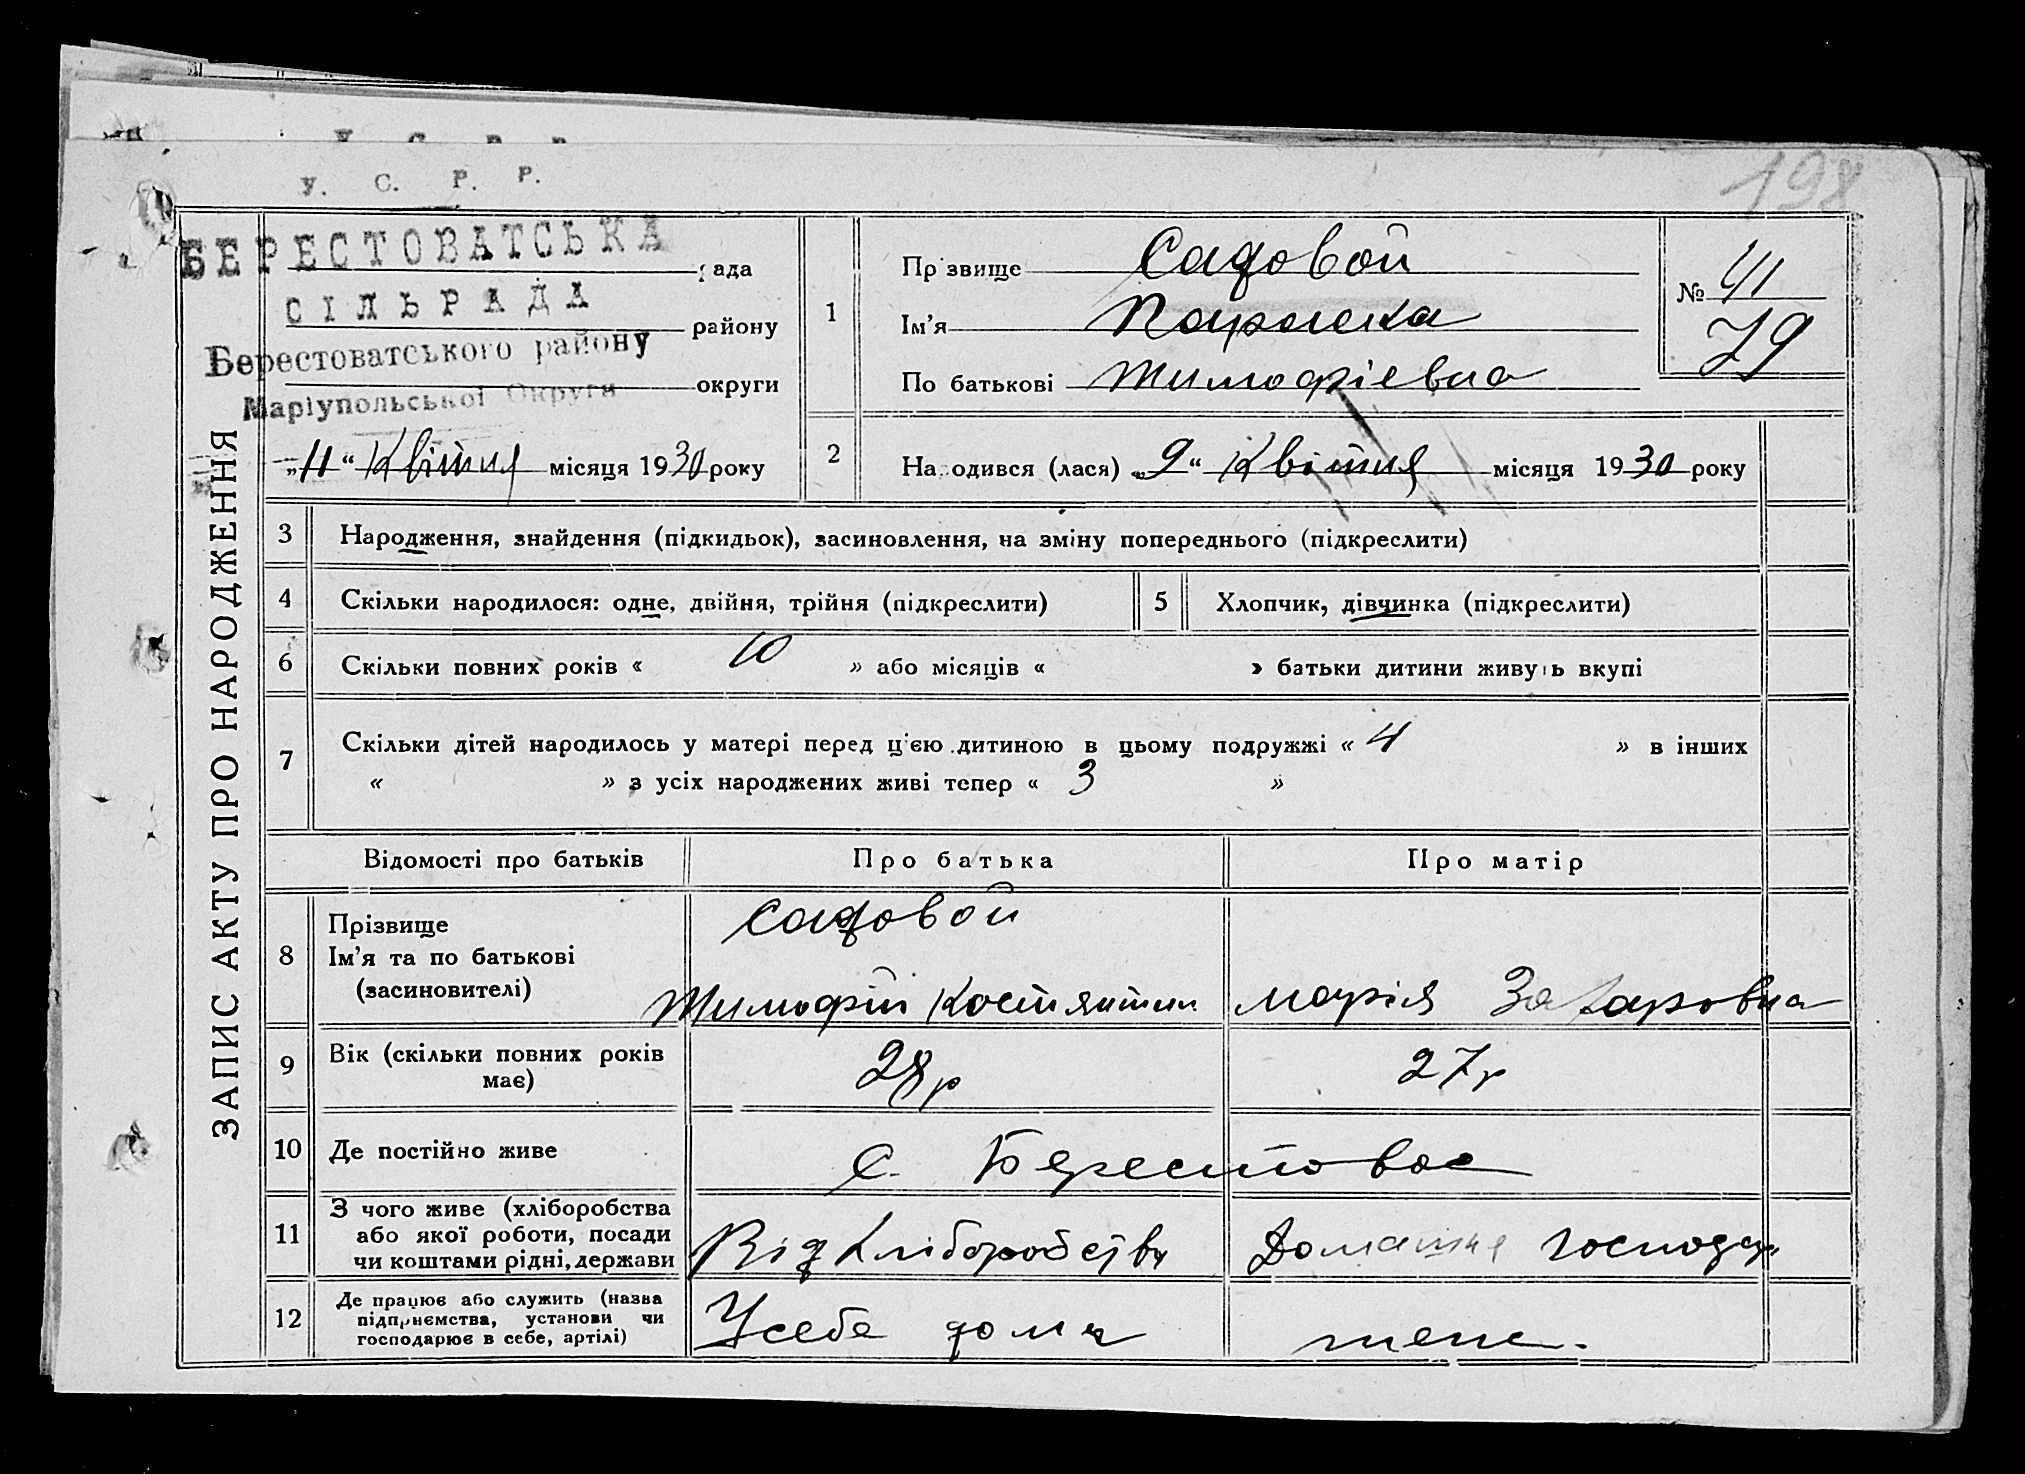 198
У. С. Р. Р.
ЗАПИС АКТУ ПРО НАРОДЖЕННЯ
БЕРЕСТОВАТСЬКА рада
СІЛЬРАДА району
Берестоватського району
Маріупольської Округи округи
„11“ Квітня місяця 1930 року
1
Прізвище Садовой
Ім’я Параска
По батькові Тимофіевна
№ 41
79
2 Народився (лася) „9“ Квітня місяця 1930 року
3 Народження, знайдення (підкидьок), засиновлення, на зміну попереднього (підкреслити)
4 Скільки народилося: одне, двійня, трійня (підкреслити) 5 Хлопчик, дівчинка (підкреслити)
6 Скільки повних років « 10 » або місяців « » батьки дитини живуть вкупі
7 Скільки дітей народилось у матері перед ц’єю дитиною в цьому подружжі « 4 » в інших
« » з усіх народжених живі тепер « 3 »
Відомості про батьків Про батька Про матір
8 Прізвище
Ім’я та по батькові
(засиновителі)
Садовой
Тимофій Костянтин
Марія Захаровна
9 Вік (скільки повних років
має)
28 р
27 р
10 Де постійно живе с. Берестовое
11 З чого живе (хліборобства
або якої роботи, посади
чи коштами рідні, держави
Від хліборобства
Домашне господар
12 Де працює або служить (назва
підприємства, установи чи
господарює в себе, артілі)
У себе дома